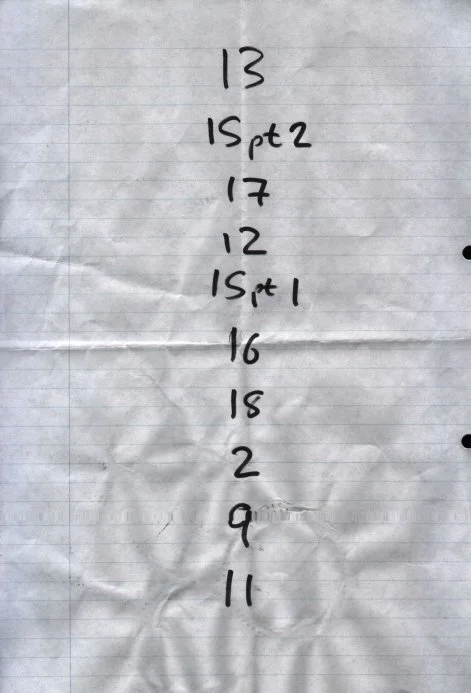 13
15 pt 2
17
12
15 pt 1
16
18
2
9
11